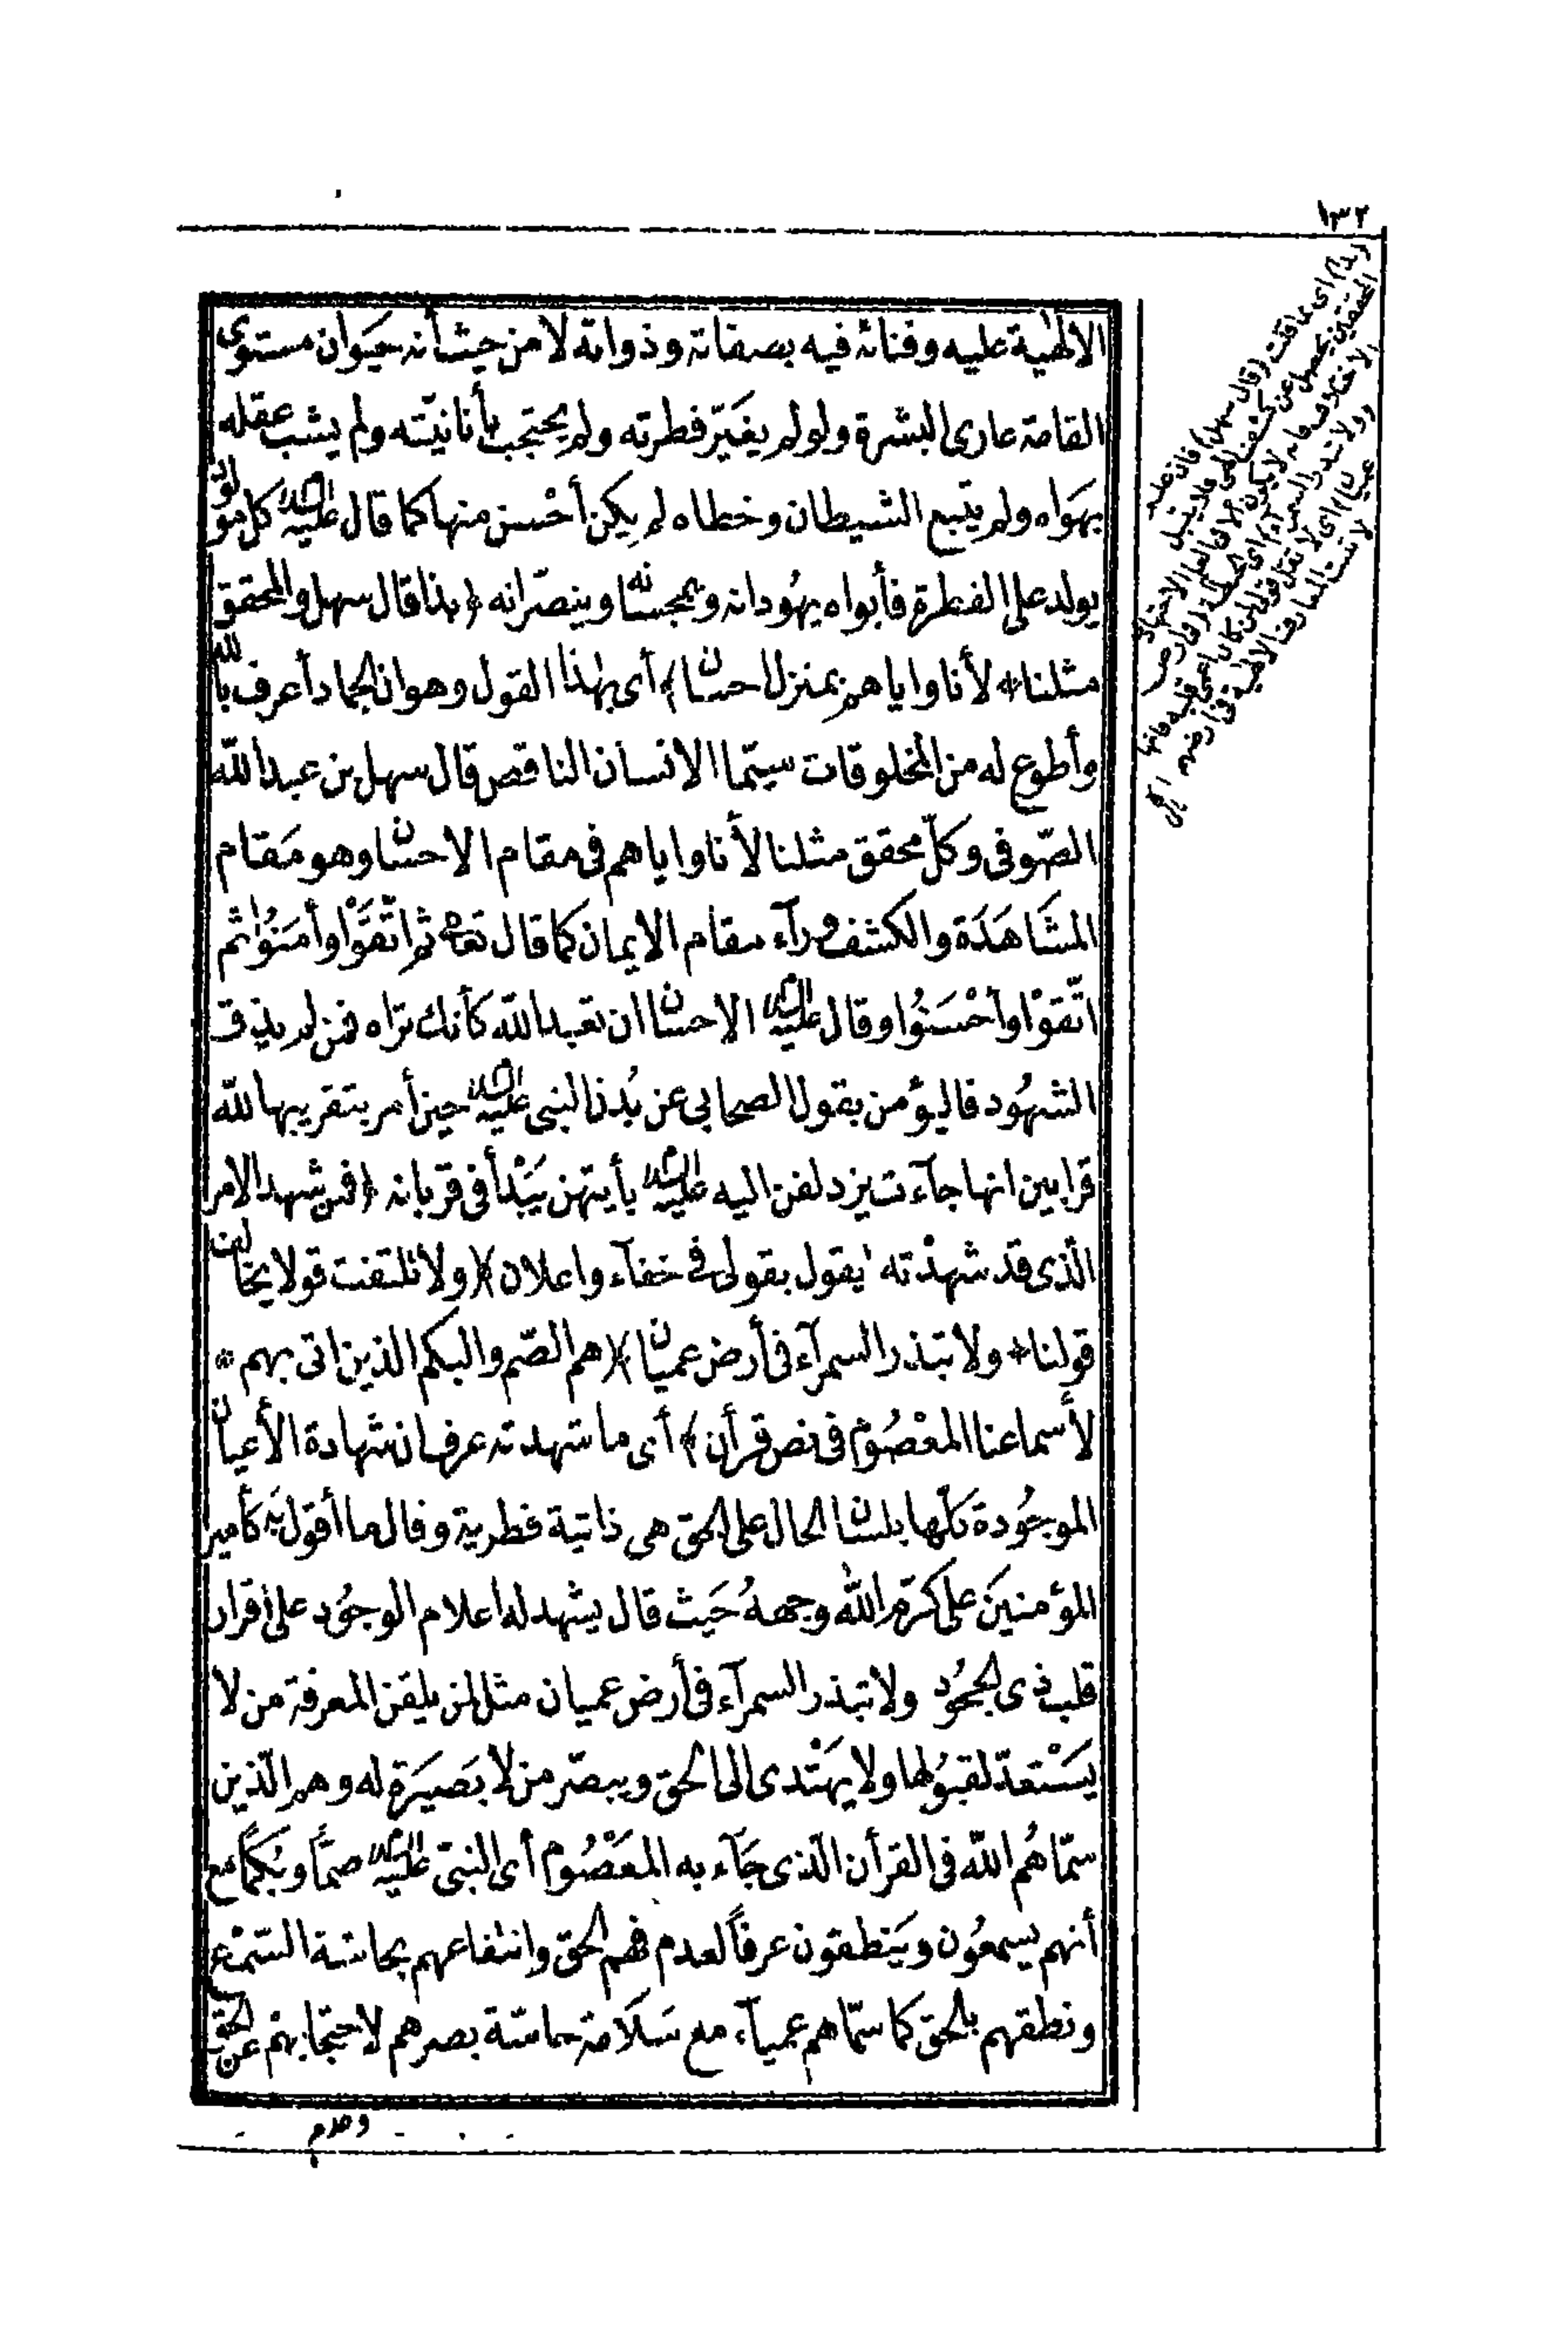 ١٣٢
الالهٰية عليه وفنائه فيه بصفاته وذواته لا من حيث أنه حيوان مستوى
القامة عارى البشرة ولو لم يغيّر فطرته ولم يحتجب بأنانيّته ولم يشب عقله
بهواه ولم يتبع الشيطان وخطاه لم يكن أحسن منها كما قال عليه السلام كل مولود
يولد على الفطرة فأبواه يهودانه ويمجسانه وينصّرانه ﴿بذا قال سهل والمحقق
مثلنا * لأنا واياهم بمنزل احسان﴾ أى بهٰذا القول وهو ان الجماد أعرف بالله
وأطوع له من المخلوقات سيّما الانسان الناقص قال سهل بن عبد الله
الصّوفى وكلّ محقق مثلنا لأنا واياهم فى مقام الاحسان وهو مَقام
المشَاهَدَة والكشف ورآء مقام الايمان كما قال تعالى ثم اتّقَوْا وأمَنُوا ثم
اتّقوْا وأحْسَنُوا وقال عليه السلام الاحسان ان تعبد الله كأنك تراه فمن لم يذق
الشهُود فاليؤمن بقول الصحابى عن بُدن النبى عليه السلام حين أمر بتقريبها لله
قرابين انها جآءت يزدلفن اليه عليه السلام بأيتهن يَبْدأ فى قربانه ﴿فمن شهد الامر
الّذى قد شهدْته يقول بقولى فى خفآء واعلان﴾﴿ولا تلتفت قولا يخالف
قولنا * ولا تبذر السمرآء فى أرض عميان﴾﴿هم الصّم والبكم الذين اتى بهم *
لأسماعنا المعْصُوم فى نص قرأن﴾ أى ما شهدته عرفان شهادة الأعيان
الموجُودة كلّها بلسان الحال على الحق هى ذاتية فطرية وقال ما أقول به كأمير
المؤمنينَ على كرّم الله وجههُ حَيث قال يشهد له اعلام الوجُود على اقرار
قلب ذى الجحُود ولا تبذر السمرآء فى أرض عميان مثل لمن يلقن المعرفة من لا
يَسْتعدّ لقبوُلها ولا يهَتْدى الى الحق ويبصّر من لا بَصيَرة له وهم الّذين
سمّاهُم الله فى القرأن الّذى جَآء به المعَصُوم أى النبىّ عليه السلام صمّاً وبُكمًا مع
أنهم يسمعُون ويَنطقون عرفاً لعدم فهم الحق وانتفاعهم بحاسّة السّمْع
ونطقهم بالحق كما سمّاهم عمياء مع سَلَامة حاسّة بصرهم لاحتجابهم عن الحق
وعدم